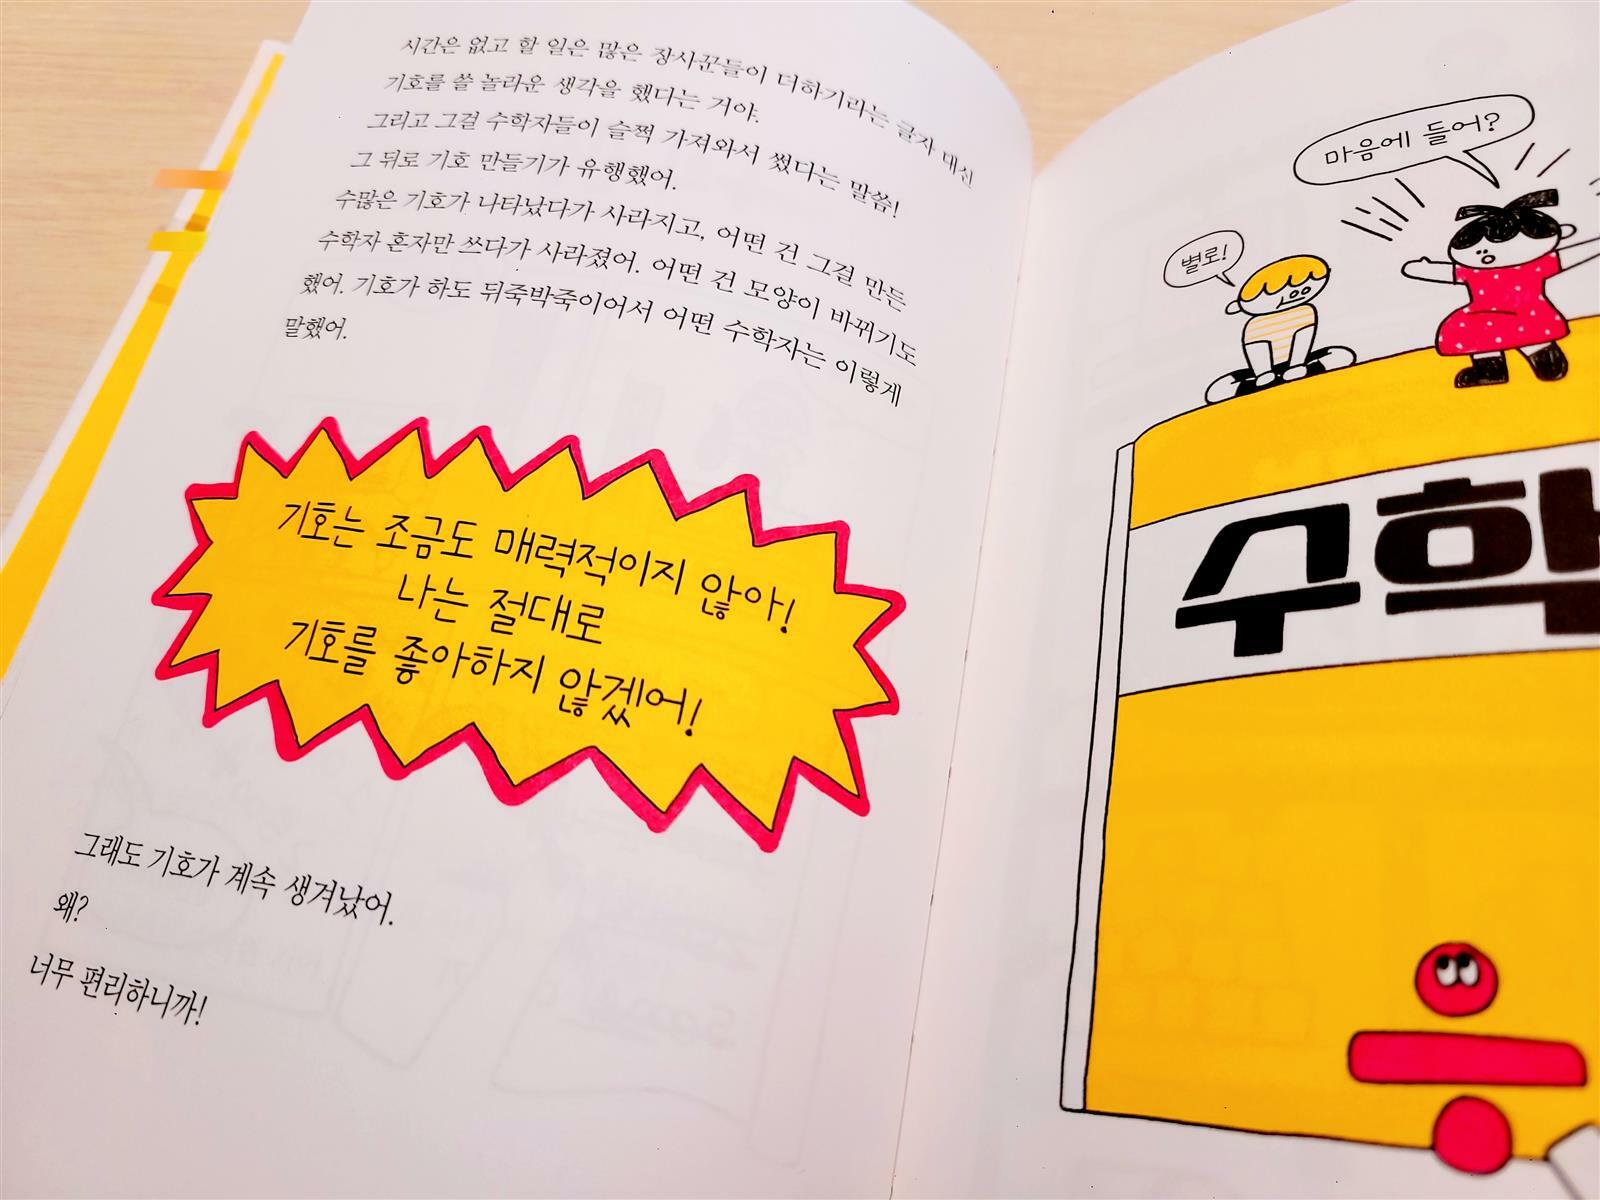 시간은 없고 할 일은 많은 장사꾼들이 더하기라는 글자 대신
기호를 쓸 놀라운 생각을 했다는 거야.
그리고 그걸 수학자들이 슬쩍 가져와서 썼다는 말씀!
그 뒤로 기호 만들기가 유행했어.
수많은 기호가 나타났다가 사라지고, 어떤 건 그걸 만든
수학자 혼자만 쓰다가 사라졌어. 어떤 건 모양이 바뀌기도
했어. 기호가 하도 뒤죽박죽이어서 어떤 수학자는 이렇게
말했어.
기호는 조금도 매력적이지 않아!
나는 절대로
기호를 좋아하지 않겠어!
그래도 기호가 계속 생겨났어.
왜?
너무 편리하니까!
마음에 들어?
별로!
수학